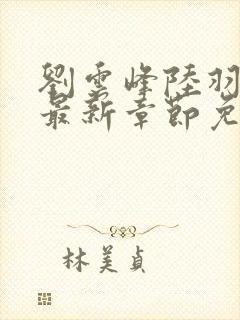 劉雲峰陸羽
最新章節免
林美貞